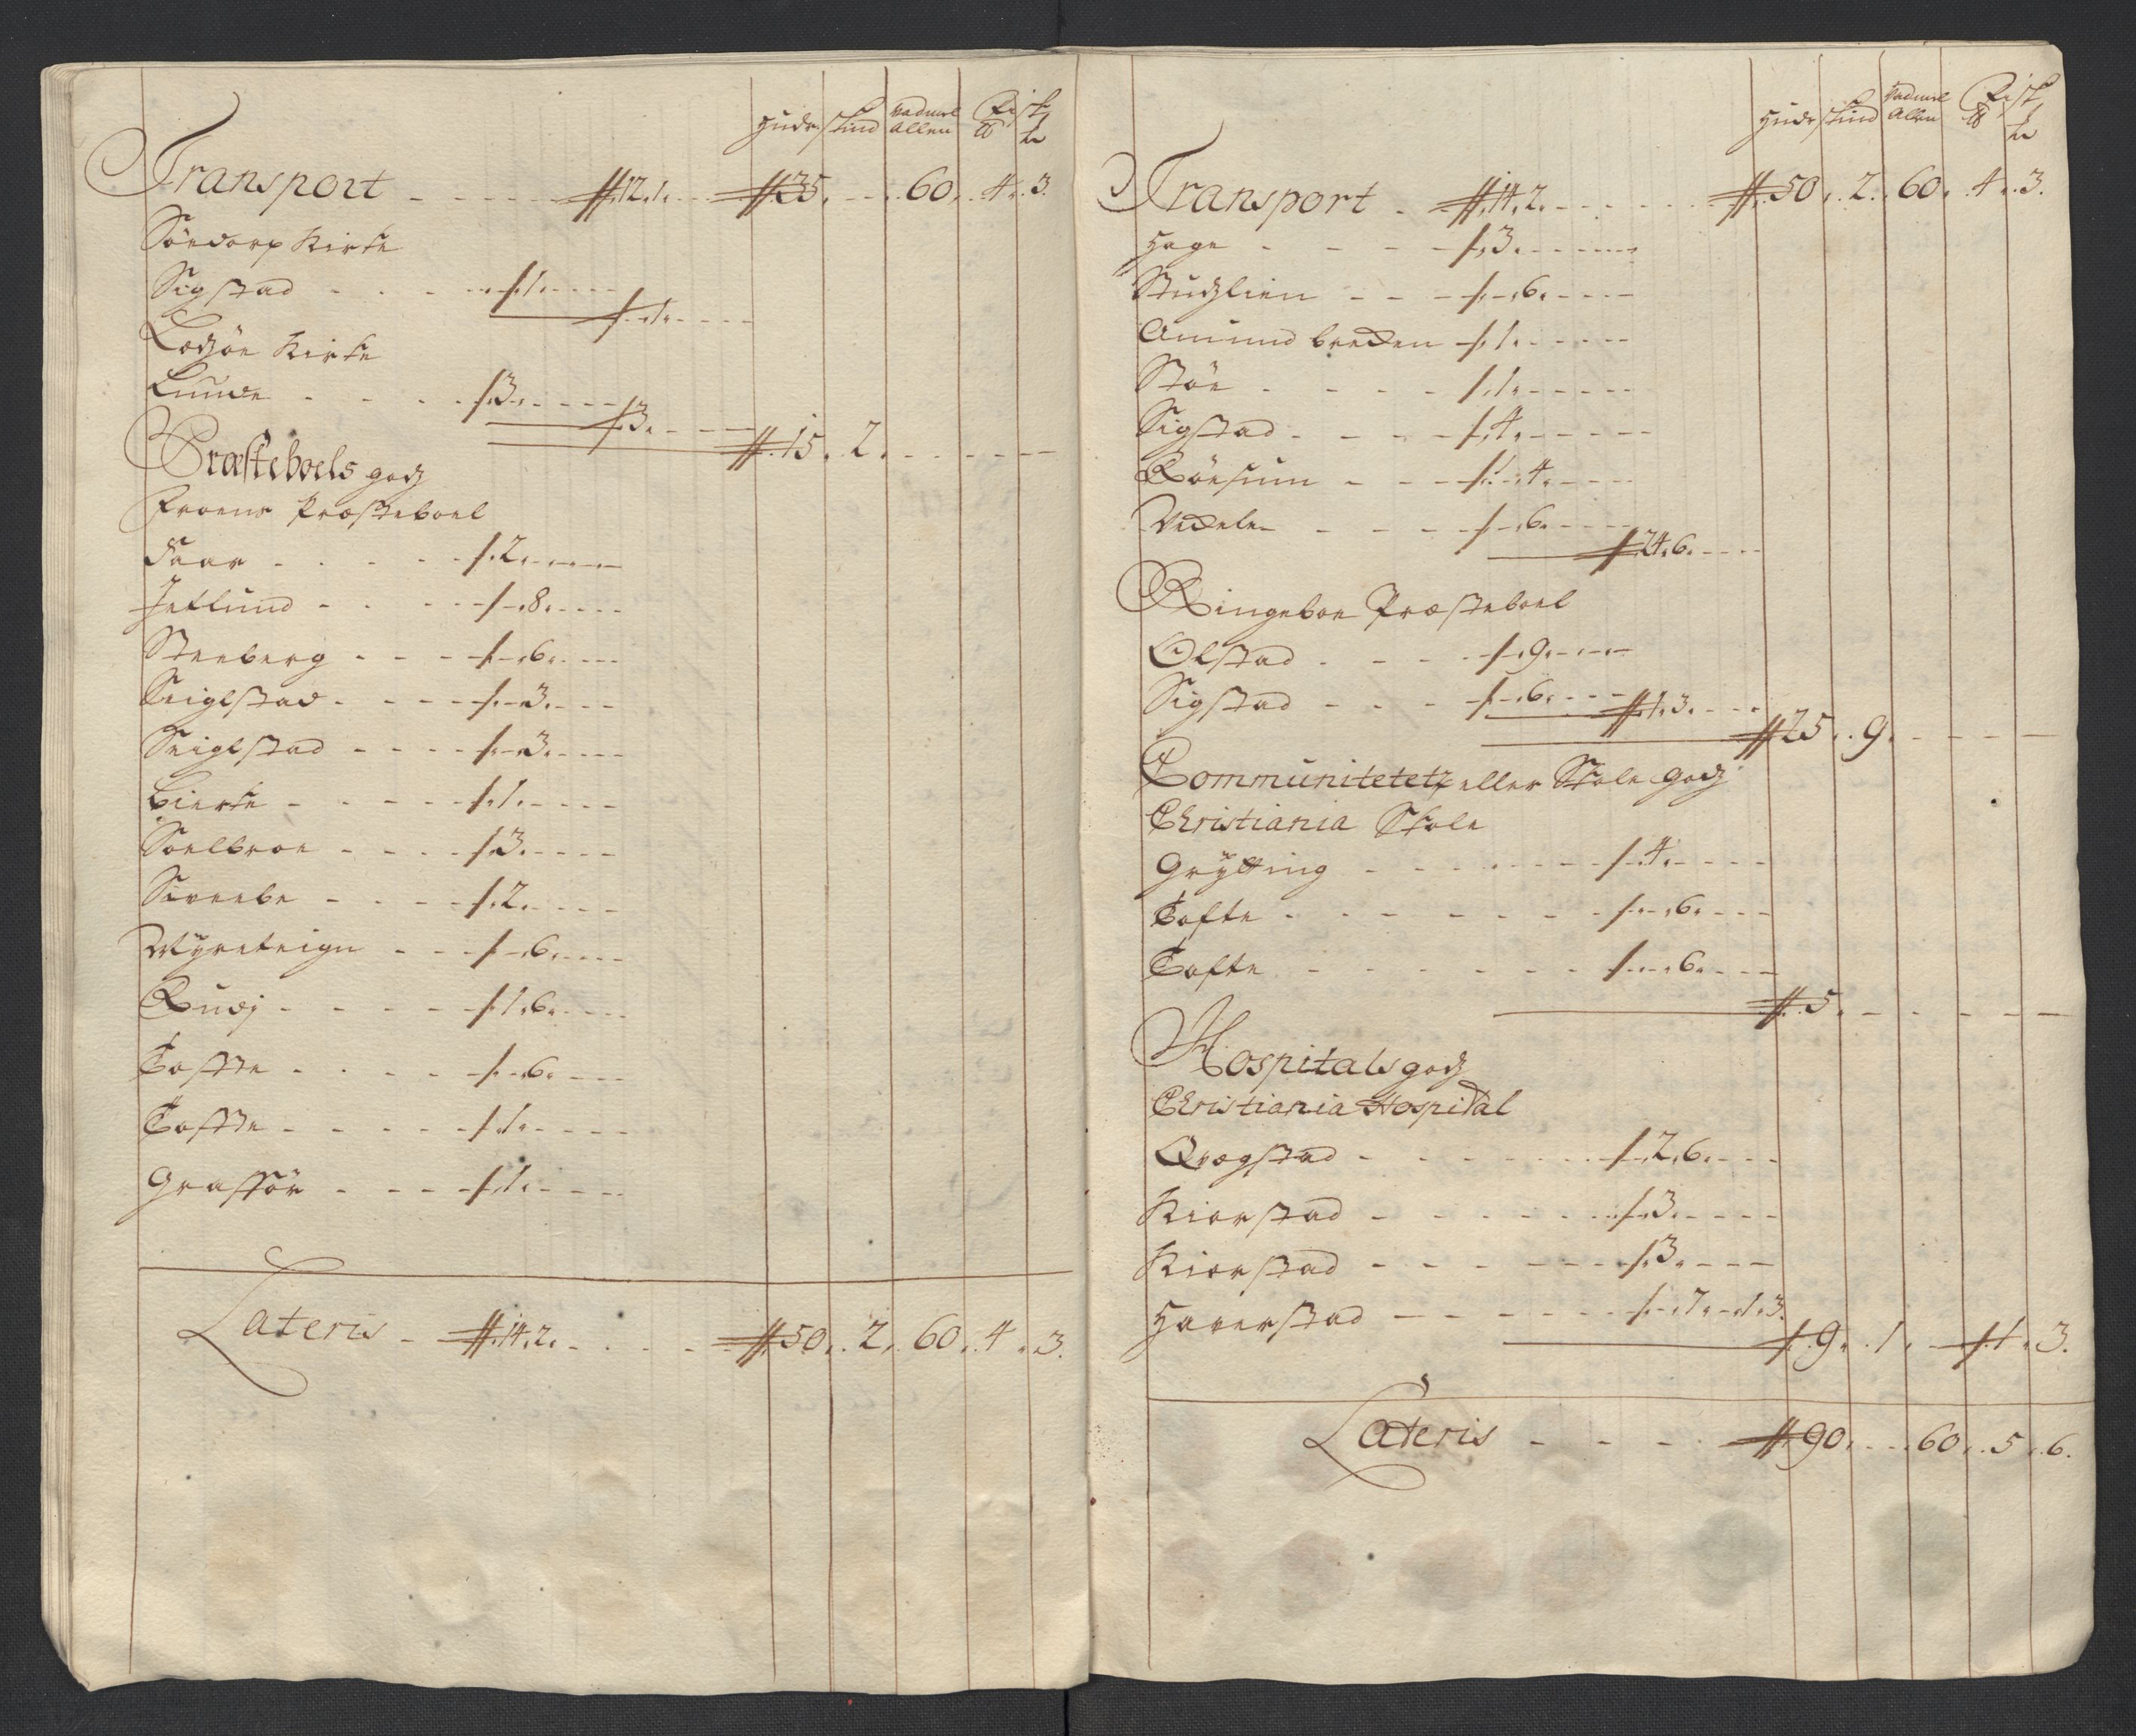 Huder skind Vadmel Allen Fisk
Transport - - - - - 12. 1. - - 35. - - 60. 4. 3.
Söedorp Kirke
Sigstad - - - 1. - - -
1. - - - -
Lodzöe Kirke
Lunde - - - - 3. - - -
3. - - - 15. 2. - - - - -
Præsteboels godz
Froens Præsteboel
Faar - - - - 2. - - -
Jetlund - - - - 8. - - -
Steeberg - - - - 6. - - -
Seiglstad - - - - 3. - - -
Seiglstad - - - - 3. - - -
Bierke - - - - 1. - - -
Soelbroe - - - - 3. - - -
Sireebe - - - - 2. - - -
Myreteign - - - 6. - - -
Rudj - - - - 1. 6. - - -
Tofste - - - - 6. - - -
Tofste - - - - 1. - - -
Grafför - - - - 1. - - -
Lateris - 14. 2. - - - - 50. 2. 60. 4. 3.
Huder skind Vadmel Allen Fisk
Transport - 14. 2. - - - - - 50. 2. 60. 4. 3.
Hage - - - - 3. - - -
Studzlien - - - 6. - - -
Amund breden 1. - - -
Stöe - - - - 1. - - -
Sigstad - - - - 4. - - -
Röesum - - - 1. 4. - - -
Vedele - - - - 6. - - -
24. 6. - - -
Ringeboe Præsteboel
Olstad - - - - 9. - - -
Sigstad - - - 6. - - -
1. 3. - - -
25. 9. - - - -
Communitetetz eller Skole godz
Christiania Skole
Grytting - - - - - - 4. - - -
Tofte - - - - - - 6. - - -
Tofte - - - - - - 6. - - -
5. - - - - -
Hospitals godz
Christiania Hospital
Qvægstad - - - - - 2. 6. - - -
Kiorstad - - - - - 3. - - -
Kiorstad - - - - - 3. - - -
Haverstad - - - - - 7. - 1. 3.
9. 1. - 1. 3.
Lateris - - - - 90. - - 60. 5. 6.